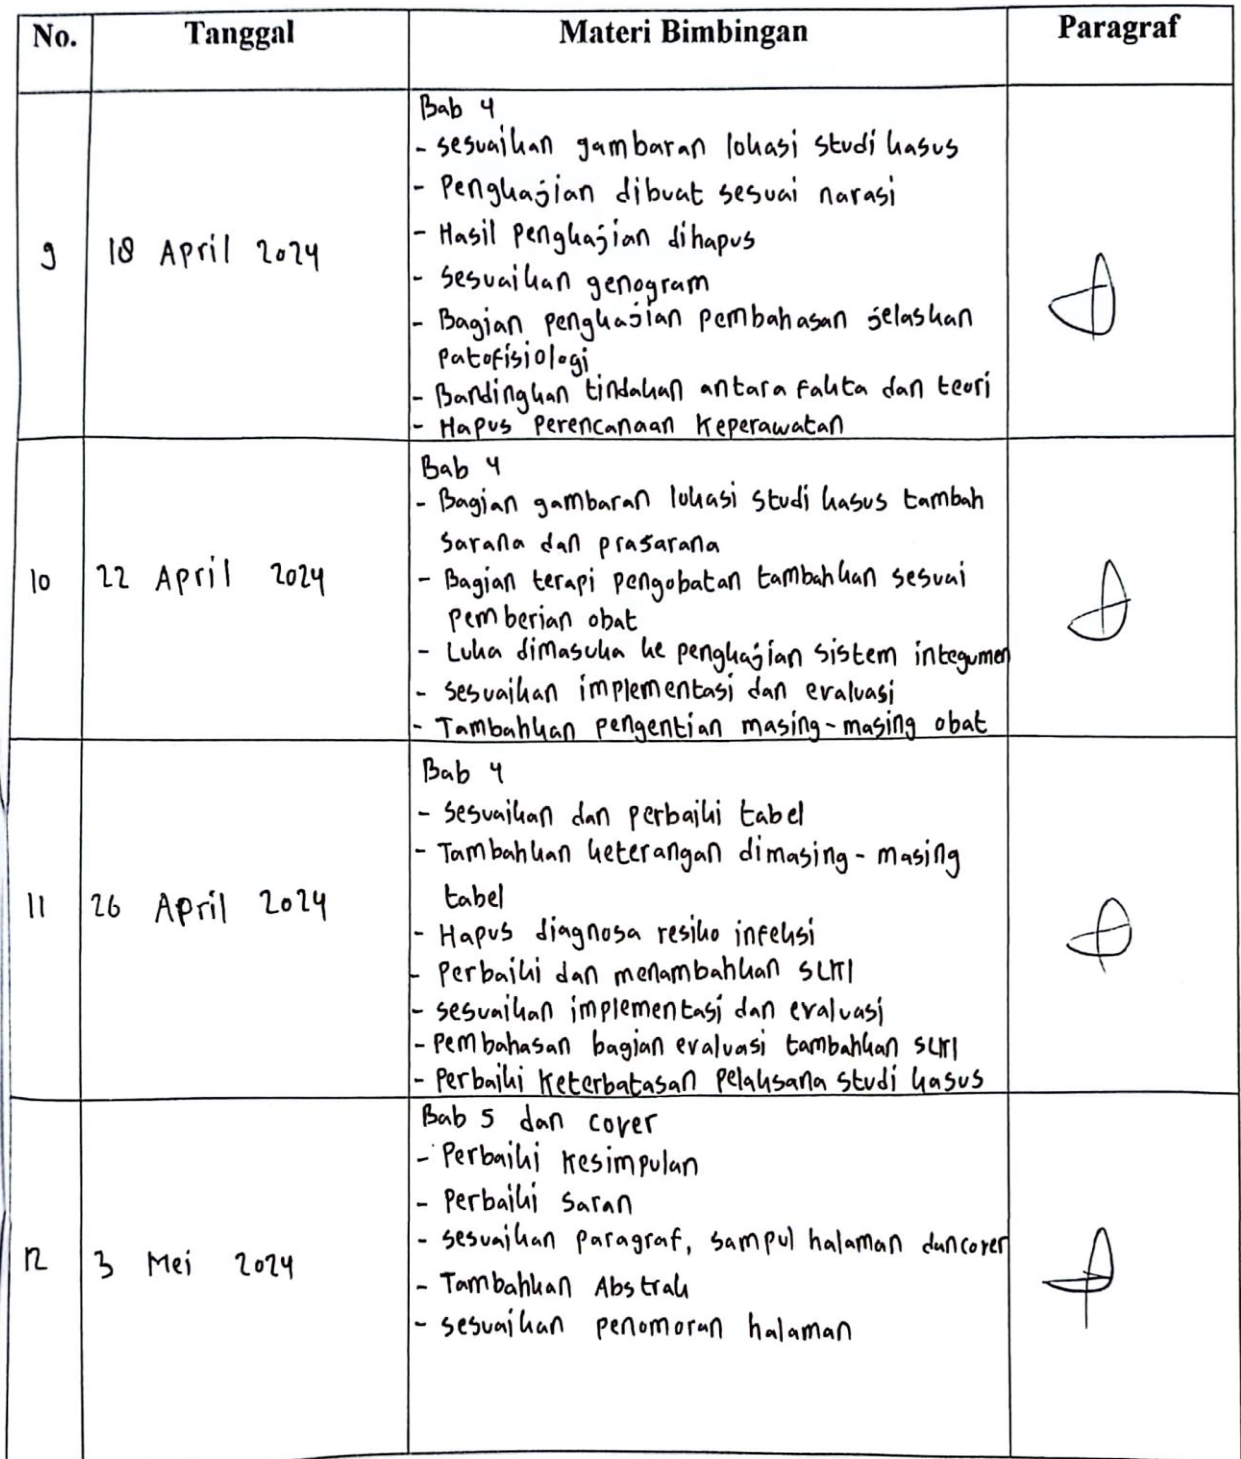 No. Tanggal Materi Bimbingan Paragraf
Bab 4
- sesuaikan gambaran lokasi studi kasus
- Pengkajian dibuat sesuai narasi
- Hasil pengkajian dihapus
9 18 April 2024
- sesuaikan genogram
- Bagian pengkajian pembahasan jelaskan
patofisiologi
- Bandingkan tindakan antara fakta dan teori
- Hapus Perencanaan Keperawatan
Bab 4
- Bagian gambaran lokasi studi kasus tambah
sarana dan prasarana
10 22 April 2024
- Bagian terapi pengobatan tambahkan sesuai
pemberian obat
- Luka dimasuka ke pengkajian sistem integumen
- sesuaikan implementasi dan evaluasi
- Tambahkan pengentian masing-masing obat
Bab 4
- sesuaikan dan perbaiki tabel
- Tambahkan keterangan dimasing-masing
tabel
11 26 April 2024
- Hapus diagnosa resiko infeksi
- Perbaiki dan menambahkan SLKI
- sesuaikan implementasi dan evaluasi
- Pembahasan bagian evaluasi tambahkan SLKI
- Perbaiki Keterbatasan Pelaksana studi kasus
Bab 5 dan cover
- Perbaiki Kesimpulan
- Perbaiki Saran
- sesuaikan paragraf, sampul halaman dan cover
12 3 Mei 2024
- Tambahkan Abstrak
- sesuaikan penomoran halaman